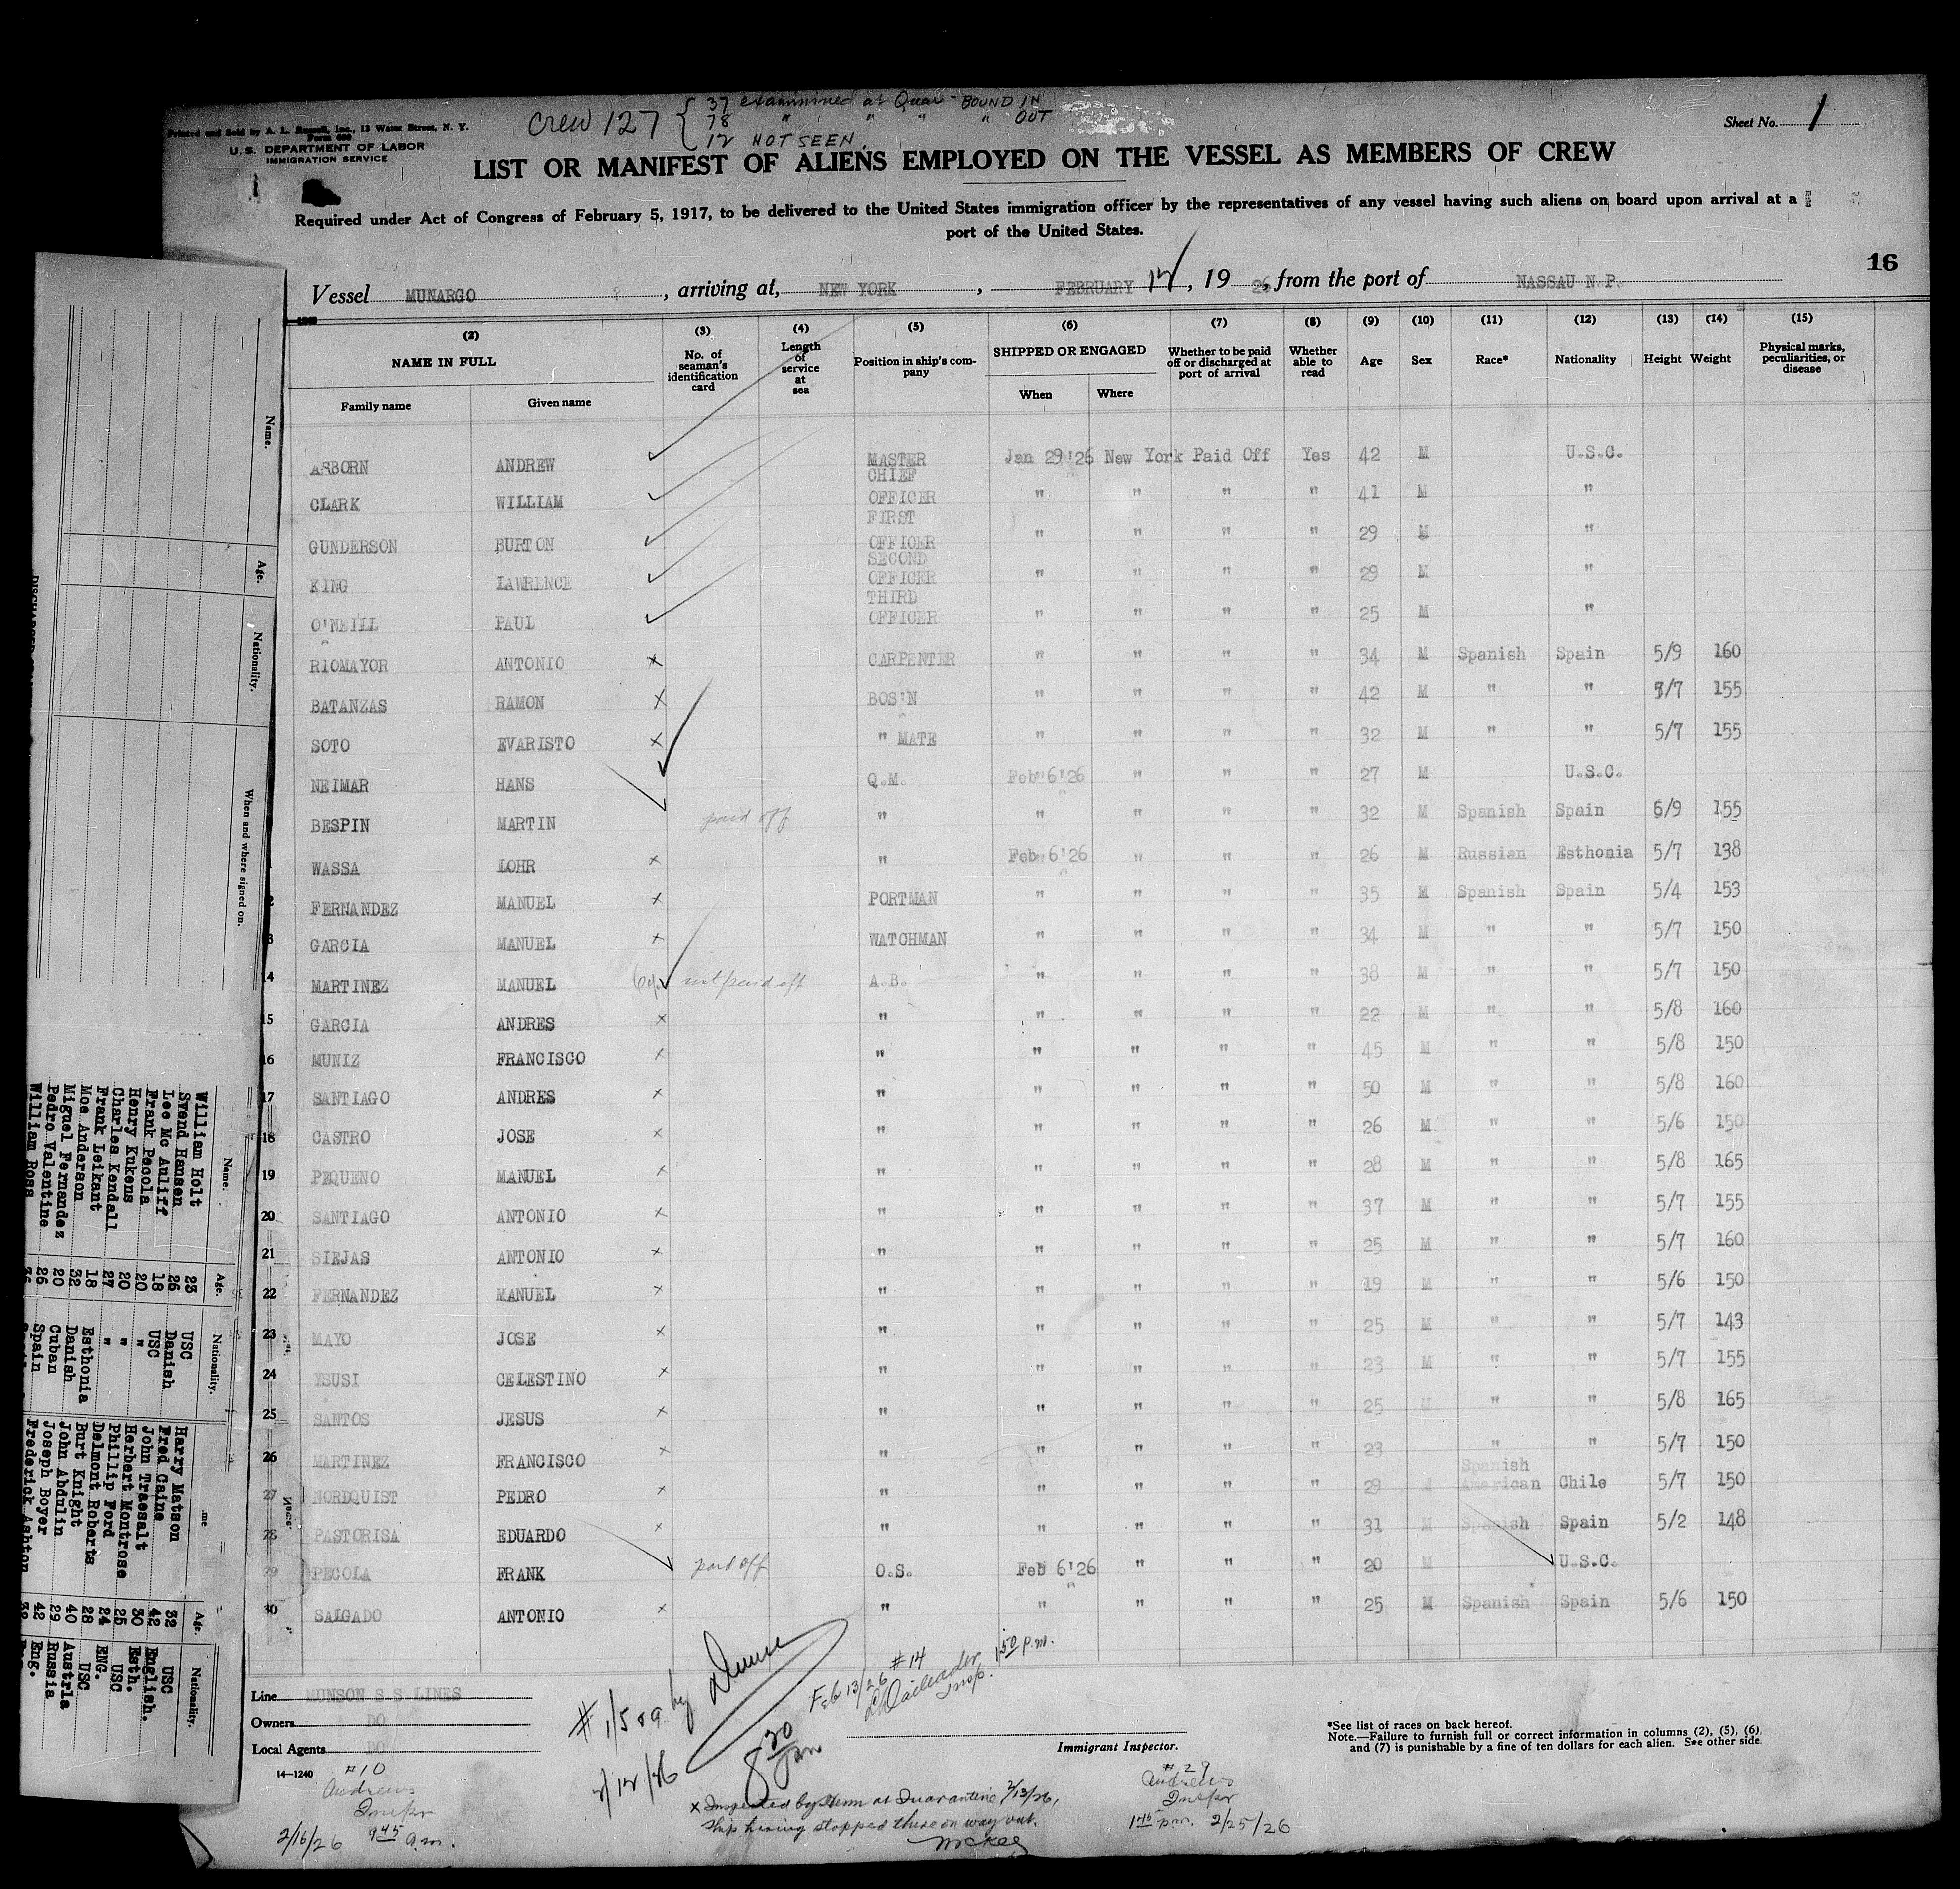 Crew 127 { 37 examined at Quar - BOUND IN
78 " " " " OUT
12 NOT SEEN.
Printed and Sold by A. L. Russell, Inc., 13 Water Street, N. Y.
Form 680
U.S. DEPARTMENT OF LABOR
IMMIGRATION SERVICE
Sheet No. 1
LIST OR MANIFEST OF ALIENS EMPLOYED ON THE VESSEL AS MEMBERS OF CREW
Required under Act of Congress of February 5, 1917, to be delivered to the United States immigration officer by the representatives of any vessel having such aliens on board upon arrival at a
port of the United States.
16
Vessel MUNARGO ?, arriving at, NEW YORK, FEBRUARY 12, 19 26, from the port of NASSAU N.P.
(2) (3) (4) (5) (6) (7) (8) (9) (10) (11) (12) (13) (14) (15)
NAME IN FULL No. of seaman's identification card Length of service at sea Position in ship's company SHIPPED OR ENGAGED Whether to be paid off or discharged at port of arrival Whether able to read Age Sex Race* Nationality Height Weight Physical marks, peculiarities, or disease
Family name Given name When Where
ASBORN ANDREW MASTER Jan 29'26 New York Paid Off Yes 42 M U.S.C.
CLARK WILLIAM CHIEF OFFICER " " " " 41 M "
GUNDERSON BURTON FIRST OFFICER " " " " 29 M "
KING LAWRENCE SECOND OFFICER " " " " 29 M "
O'NEILL PAUL THIRD OFFICER " " " " 25 M "
RIOMAYOR ANTONIO x CARPENTER " " " " 34 M Spanish Spain 5/9 160
BATANZAS RAMON x BOS'N " " " " 42 M " " 5/7 155
SOTO EVARISTO x " MATE " " " " 32 M " " 5/7 155
NEIMAR HANS Q.M. Feb 6'26 " " " 27 M U.S.C.
BESPIN MARTIN paid off " " " " " 32 M Spanish Spain 6/9 155
WASSA LOHR x " Feb 6'26 " " " 26 M Russian Esthonia 5/7 138
FERNANDEZ MANUEL x PORTMAN " " " " 35 M Spanish Spain 5/4 153
3 GARCIA MANUEL x WATCHMAN " " " " 34 M " " 5/7 150
4 MARTINEZ MANUEL paid off A.B. " " " " 38 M " " 5/7 150
15 GARCIA ANDRES x " " " " " 22 M " " 5/8 160
16 MUNIZ FRANCISCO x " " " " " 45 M " " 5/8 150
17 SANTIAGO ANDRES x " " " " " 50 M " " 5/8 160
18 CASTRO JOSE x " " " " " 26 M " " 5/6 150
19 PEQUENO MANUEL x " " " " " 28 M " " 5/8 165
20 SANTIAGO ANTONIO x " " " " " 37 M " " 5/7 155
21 SIEJAS ANTONIO x " " " " " 25 M " " 5/7 160
22 FERNANDEZ MANUEL x " " " " " 19 M " " 5/6 150
23 MAYO JOSE x " " " " " 25 M " " 5/7 143
24 YSUSI CELESTINO x " " " " " 23 M " " 5/7 155
25 SANTOS JESUS x " " " " " 25 M " " 5/8 165
26 MARTINEZ FRANCISCO x " " " " " 23 " " 5/7 150
27 NORDQUIST PEDRO x " " " " " 29 M Spanish American Chile 5/7 150
28 PASTORISA EDUARDO x " " " " " 31 M Spanish Spain 5/2 148
29 PECOLA FRANK paid off O.S. Feb 6'26 " " " 20 M U.S.C.
30 SALGADO ANTONIO x " " " " " 25 M Spanish Spain 5/6 150
Line MUNSON S S LINES
Owners DO
Local Agents DO
14—1240
#10
Andrews
Inspr
2/16/26 9 45 a.m.
2/12/26
8 30 pm
Feb 13/26 #14
Insp. 1 50 P.M.
Immigrant Inspector.
x Inspected by at Quarantine 2/13/26,
ship having stopped there on way out.
McKee
#29
Andrews
Inspr
1 45 p.m. 2/25/26
*See list of races on back hereof.
Note.—Failure to furnish full or correct information in columns (2), (5), (6),
and (7) is punishable by a fine of ten dollars for each alien. See other side.
Name. Age. Nationality. When and where signed on.
Name. Age. Nationality.
William Holt 23 USC
Svend Hansen 26 Danish
Lee Mc Auliff 18 USC
Frank Pecola 20 "
Henry Kukens 20 "
Charles Kendall 27 "
Frank Leikant 18
Moe Anderson 32
Miguel Fernandez 20
Pedro Valentine 26
William Ross 36
Esthonia
Danish
Cuban
Spain
me Age. Nationality.
Harry Matson 32 USC
Fred Caine 42 English.
John Traesalt 30 Esth.
Herbert Montrose 25 USC
Phillip Ford 24 ENG.
Delmont Roberts 28 USC
Burt Knight 40 Austria
John Abdulin 29 Russia
Joseph Boyer 42 Eng.
Frederick Ashton 32